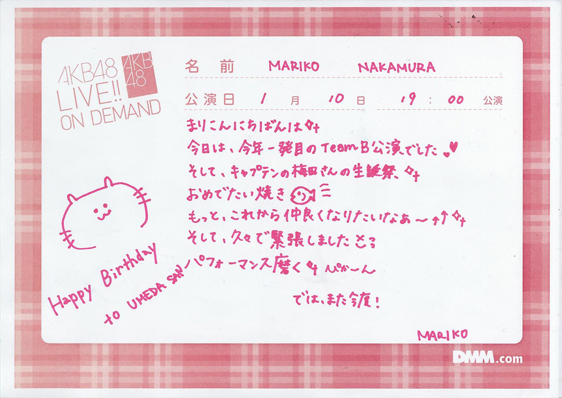 AKB48
LIVE!!
ON DEMAND
AKB
48
名 前 MARIKO NAKAMURA
公演日 1 月 10 日 19 : 00 公演
まりこんにちばんは
今日は、今年一発目のTeamB公演でした
そして、キャプテンの梅田さんの生誕祭、
おめでたい焼き
もっと、これから仲良くなりたいなぁ〜↑↑
そして、久々で緊張しました
パフォーマンス磨く ぺかーん
では、また今度!
MARIKO
Happy Birthday
to UMEDA SAN
DMM.com